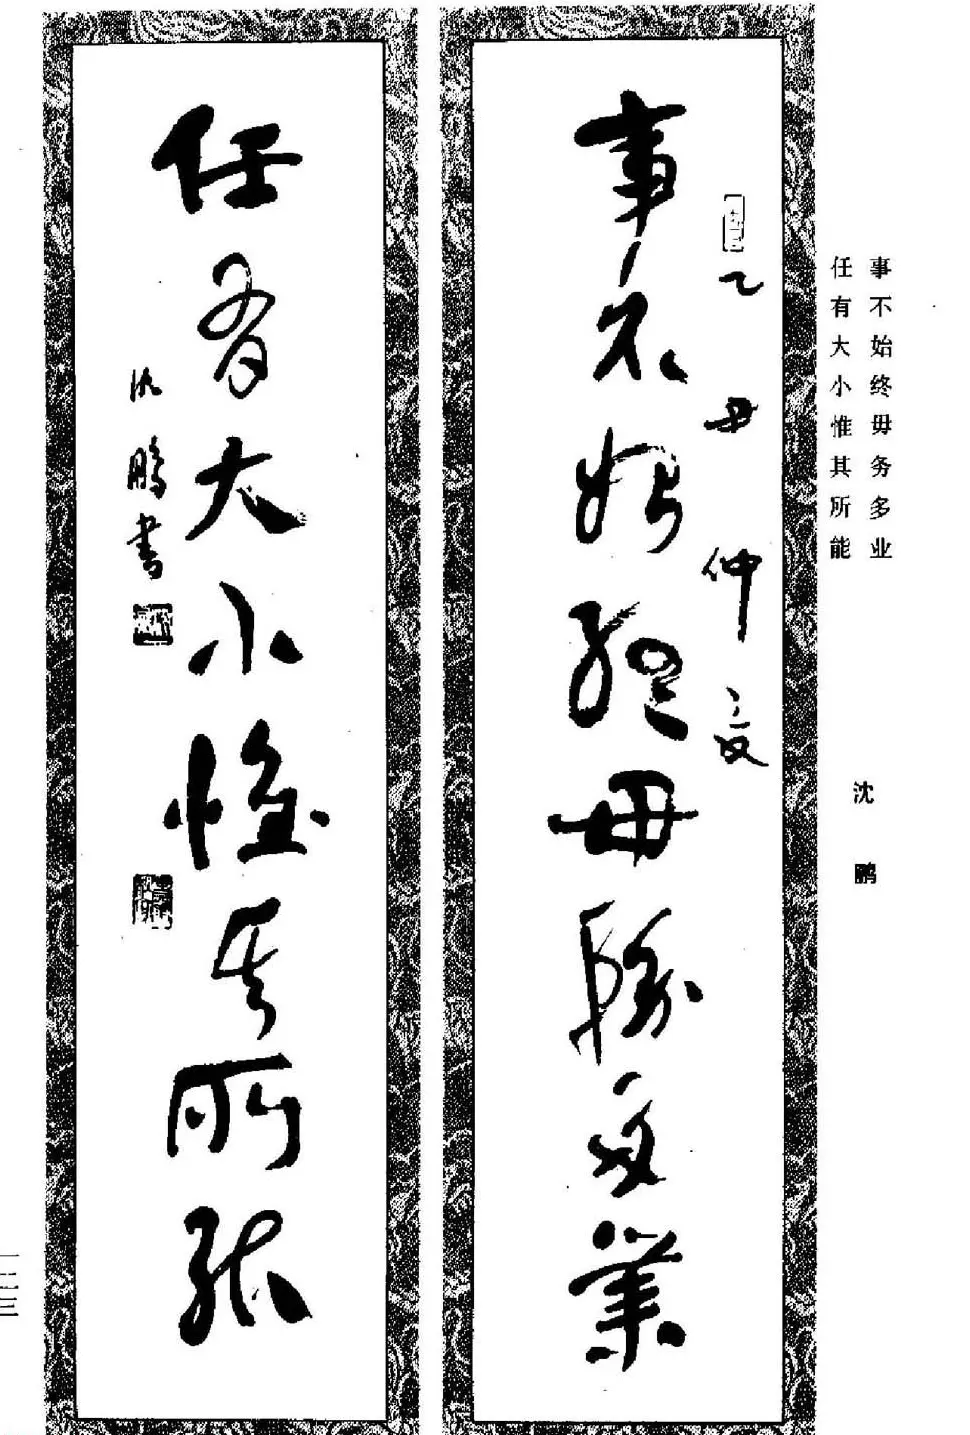 事不始终毋务多业
任有大小惟其所能
沈鹏
乙丑仲夏
事不始終毋務多業
任有大小惟其所能
沈鵬書
一二三